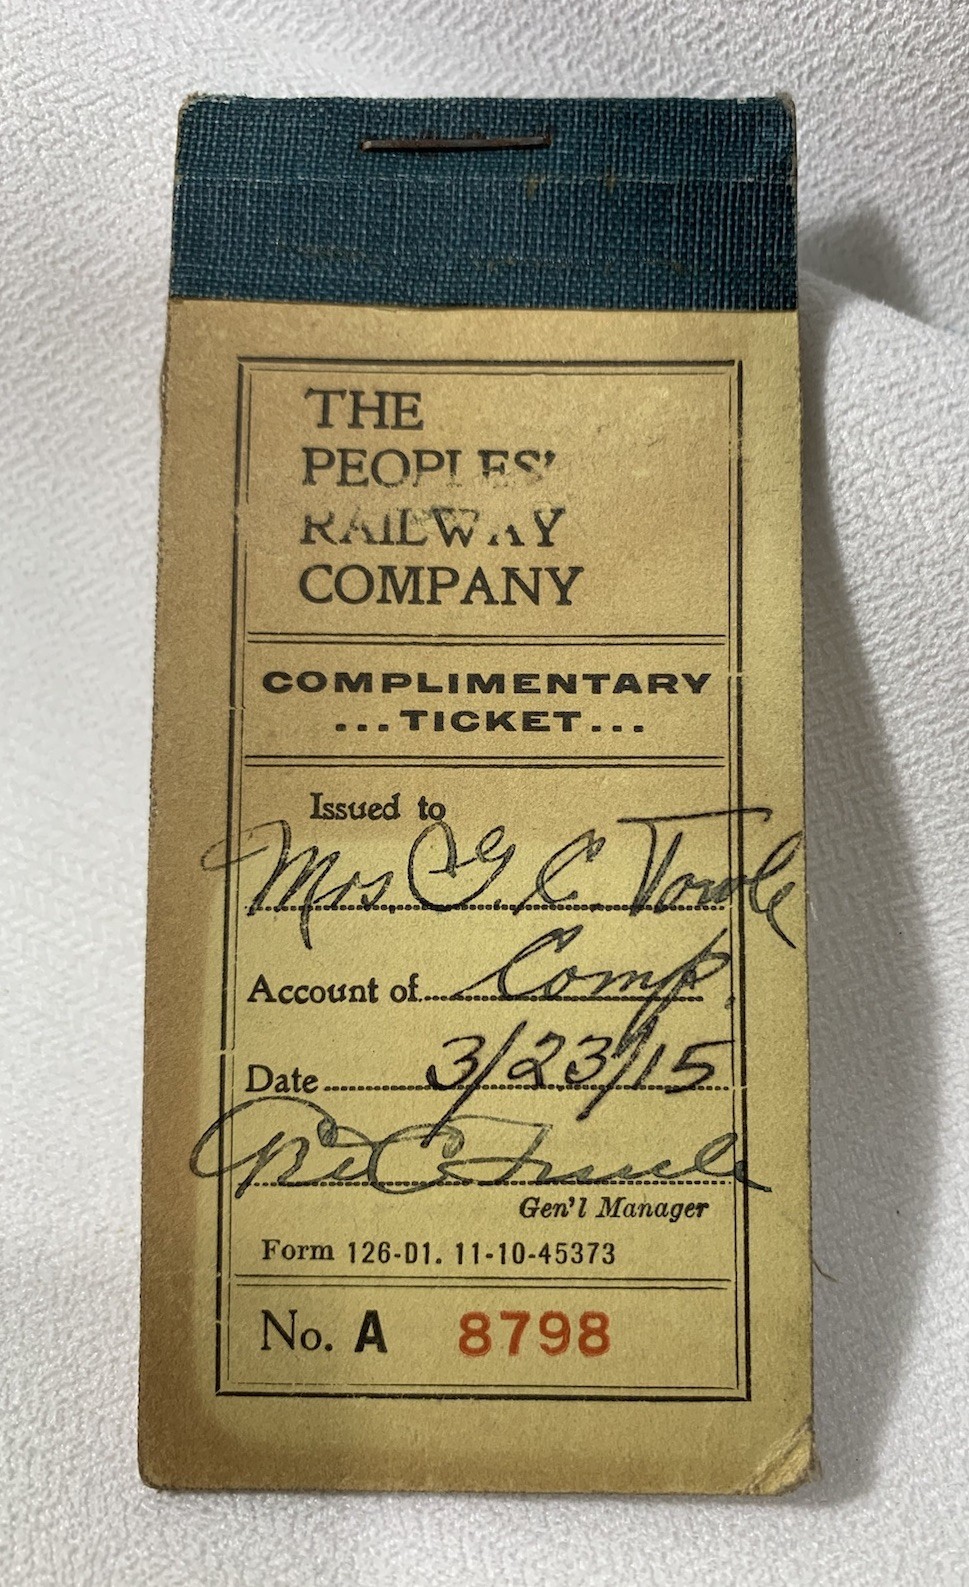 THE
PEOPLES'
RAILWAY
COMPANY
COMPLIMENTARY
...TICKET...
Issued to
Mrs. G. C. Towle
Account of Comp.
Date 3/23/15
Gen'l Manager
Form 126-D1. 11-10-45373
No. A 8798